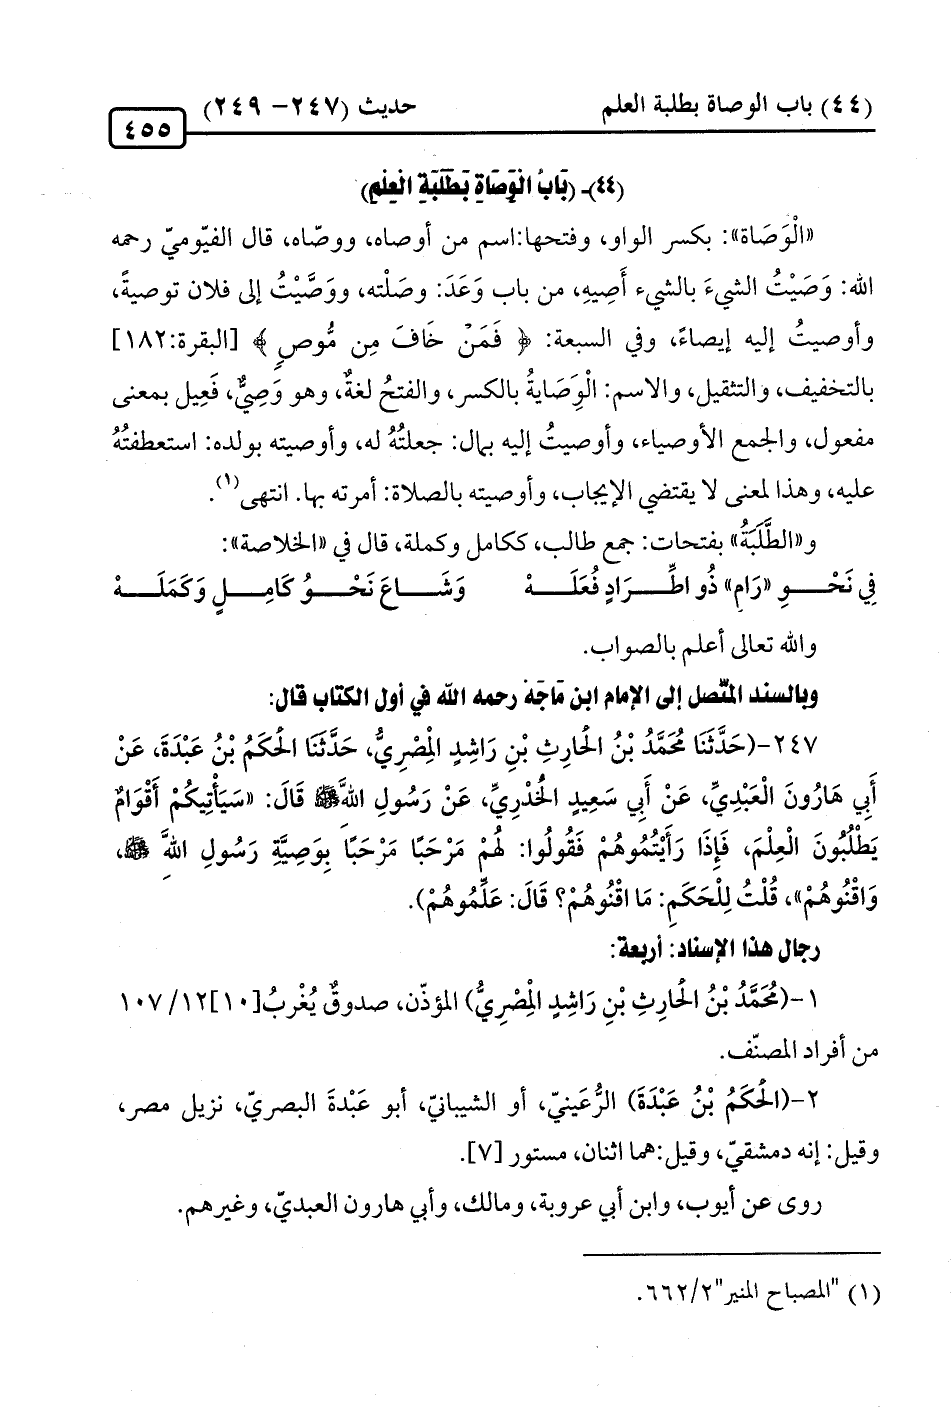 (٤٤) باب الوصاة بطلبة العلم
حديث (٢٤٧- ٢٤٩)
٤٥٥
(٤٤)- (بَابُ الْوَصَاةِ بَطَلَبَةِ الْعِلْمِ)
«الْوَصَاة»: بكسر الواو، وفتحها:اسم من أوصاه، ووصّاه، قال الفيّوميّ رحمه
الله: وَصَيْتُ الشيءَ بالشيء أَصِيهِ، من باب وَعَدَ: وصَلْته، ووَصَّيْتُ إلى فلان توصيةً،
وأوصيتُ إليه إيصاءً، وفي السبعة: ﴿ فَمَنْ خَافَ مِن مُّوصٍ ﴾ [البقرة:١٨٢]
بالتخفيف، والتثقيل، والاسم: الْوِصَايةُ بالكسر، والفتحُ لغةٌ، وهو وَصِيٌّ، فَعِيل بمعنى
مفعول، والجمع الأوصياء، وأوصيتُ إليه بمال: جعلتُهُ له، وأوصيته بولده: استعطفتُهُ
عليه، وهذا لمعنى لا يقتضي الإيجاب، وأوصيته بالصلاة: أمرته بها. انتهى(١).
و«الطَّلَبَةُ» بفتحات: جمع طالب، ككامل وكملة، قال في «الخلاصة»:
فِي نَحْـــوِ «رَامٍ» ذُو اطِّـــرَادٍ فُعَلَـــهْ وَشَـــاعَ نَحْـــوُ كَامِـــلٍ وَكَمَلَـــهْ
والله تعالى أعلم بالصواب.
وبالسند المتّصل إلى الإمام ابن مَاجَهْ رحمه الله في أول الكتاب قال:
٢٤٧-(حَدَّثَنَا مُحَمَّدُ بْنُ الْحَارِثِ بْنِ رَاشِدٍ الْمِصْرِيُّ، حَدَّثَنَا الْحَكَمُ بْنُ عَبْدَةَ، عَنْ
أَبِي هَارُونَ الْعَبْدِيِّ، عَنْ أَبِي سَعِيدٍ الْخُدْرِيِّ، عَنْ رَسُولِ اللهِ ﷺ قَالَ: «سَيَأْتِيكُمْ أَقْوَامٌ
يَطْلُبُونَ الْعِلْمَ، فَإِذَا رَأَيْتُمُوهُمْ فَقُولُوا: لَهُمْ مَرْحَبًا مَرْحَبًا بِوَصِيَّةِ رَسُولِ اللهِ ﷺ،
وَاقْنُوهُمْ»، قُلْتُ لِلْحَكَمِ: مَا اقْنُوهُمْ؟ قَالَ: عَلِّمُوهُمْ).
رجال هذا الإسناد: أربعة:
١-(مُحَمَّدُ بْنُ الْحَارِثِ بْنِ رَاشِدٍ الْمِصْرِيُّ) المؤذّن، صدوقٌ يُغْرِبُ[١٠]١٢/ ١٠٧
من أفراد المصنّف.
٢-(الْحَكَمُ بْنُ عَبْدَةَ) الرُّعَينيّ، أو الشيبانيّ، أبو عَبْدةَ البصريّ، نزيل مصر،
وقيل: إنه دمشقيّ، وقيل:هما اثنان، مستور [٧].
روى عن أيوب، وابن أبي عروبة، ومالك، وأبي هارون العبديّ، وغيرهم.
(١) "المصباح المنير"٦٦٢/٢.